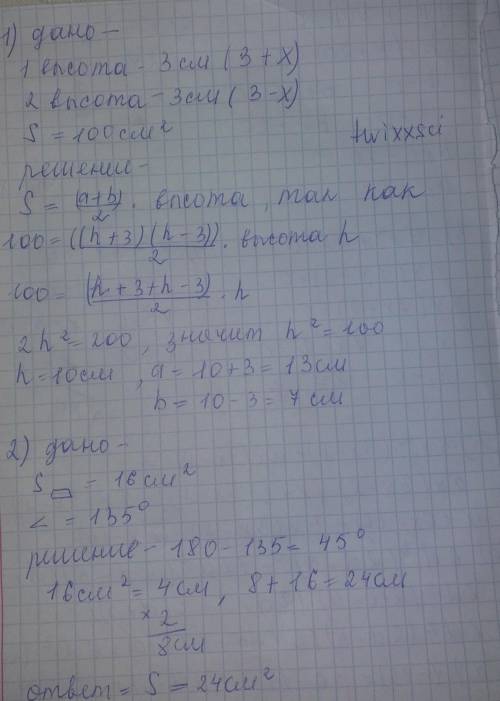 1) дано –
1 высота – 3 см (3 + х)
2 высота – 3см (3 – х)
S = 100 см²
twixxsci
решение –
S = (a+b)/2 · высота, так как
100 = ((h+3)(h–3))/2 · высота h
100 = (h+3+h–3)/2 · h
2h² = 200, значит h² = 100
h = 10см, a = 10+3 = 13см
b = 10 – 3 = 7 см
2) дано –
S▱ = 16 см²
∠ = 135°
решение – 180 – 135 = 45°
16см² = 4см, 8 + 16 = 24см
× 2
8см
ответ = S = 24см²